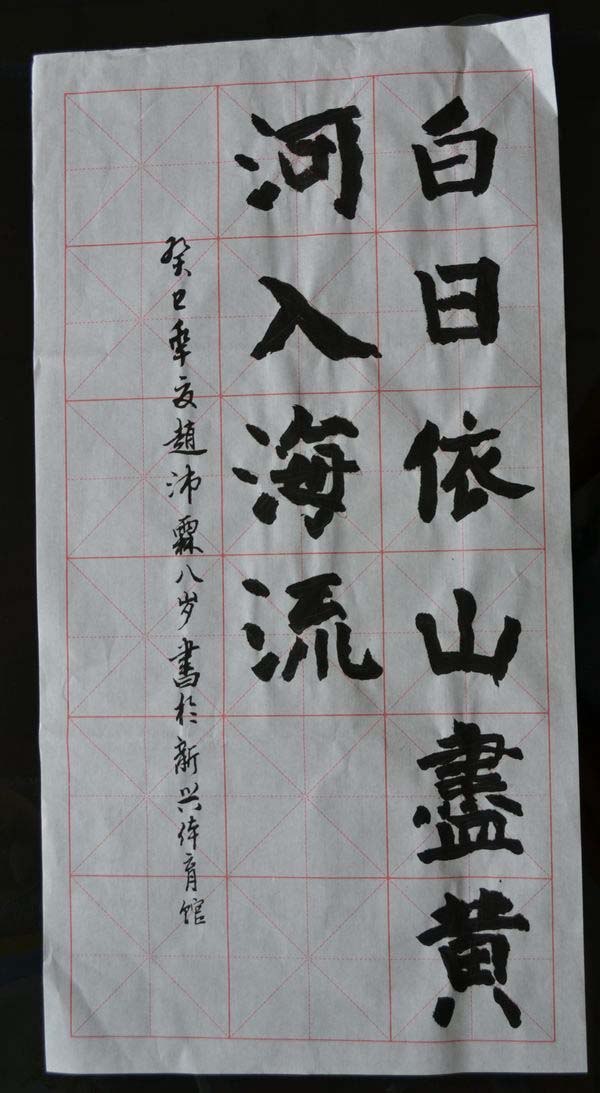 白日依山盡黄
河入海流
癸巳年夏趙沛霖八岁書於新兴体育馆